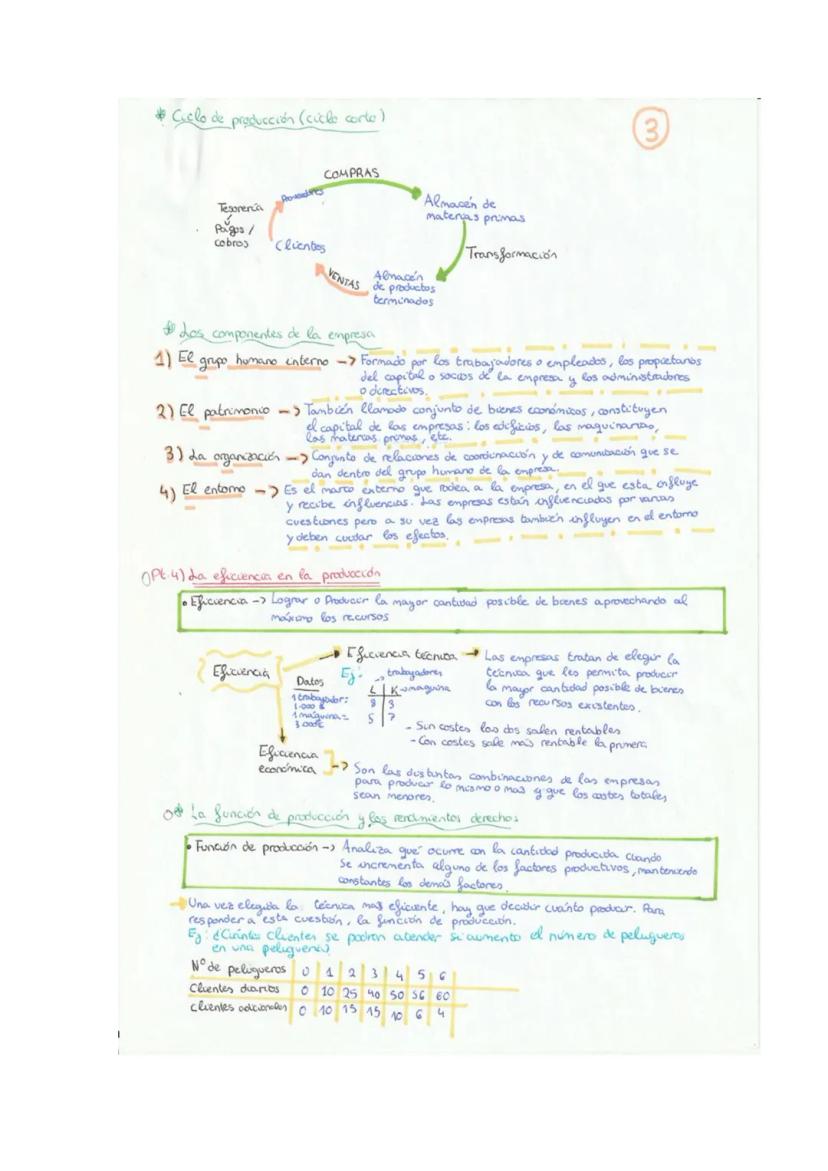 * Ciclo de producción (ciclo corto)
3
COMPRAS
Proveedores
Tesorería
Pagos /
cobros
Almacén de
materias primas
Clientes
Transformación
VENTAS
Almacén
de productos
terminados
* Los componentes de la empresa
1) El grupo humano interno -> Formado por los trabajadores o empleados, los propietarios
del capital o socios de la empresa y los administradores
o directivos.
2) El patrimonio -> También llamado conjunto de bienes económicos, constituyen
el capital de las empresas: los edificios, las maquinarias,
las materias primas, etc.
3) La organización -> Conjunto de relaciones de coordinación y de comunicación que se
dan dentro del grupo humano de la empresa.
4) El entorno -> Es el marco externo que rodea a la empresa, en el que esta influye
y recibe influencias. Las empresas están influenciadas por varias
cuestiones pero a su vez las empresas también influyen en el entorno
y deben cuidar los efectos.
Pt.4) La eficiencia en la producción
• Eficiencia -> Lograr o Producir la mayor cantidad posible de bienes aprovechando al
máximo los recursos
Eficiencia
Eficiencia técnica -> Las empresas tratan de elegir la
técnica que les permita producir
la mayor cantidad posible de bienes
con los recursos existentes.
Datos
1 trabajador:
1.000 €
1 máquina =
3.000€
Ej: -> trabajadores
L K -> maquina
8 3
5 7
- Sin costes las dos salen rentables
- Con costes sale más rentable la primera
Eficiencia
económica -> Son las distintas combinaciones de las empresas
para producir lo mismo o mas y que los costes totales
sean menores.
* La función de producción y los rendimientos derechos
• Función de producción -> Analiza qué ocurre con la cantidad producida cuando
se incrementa alguno de los factores productivos, manteniendo
constantes los demás factores.
Una vez elegida la técnica mas eficiente, hay que decidir cuánto producir. Para
responder a esta cuestión, la función de producción.
Ej: ¿Cuántos clientes se podran atender si aumento el número de peluqueros
en una peluquería?
Nº de peluqueros 0 1 2 3 4 5 6
Clientes diarios 0 10 25 40 50 56 60
clientes adicionales 0 10 15 15 10 6 4